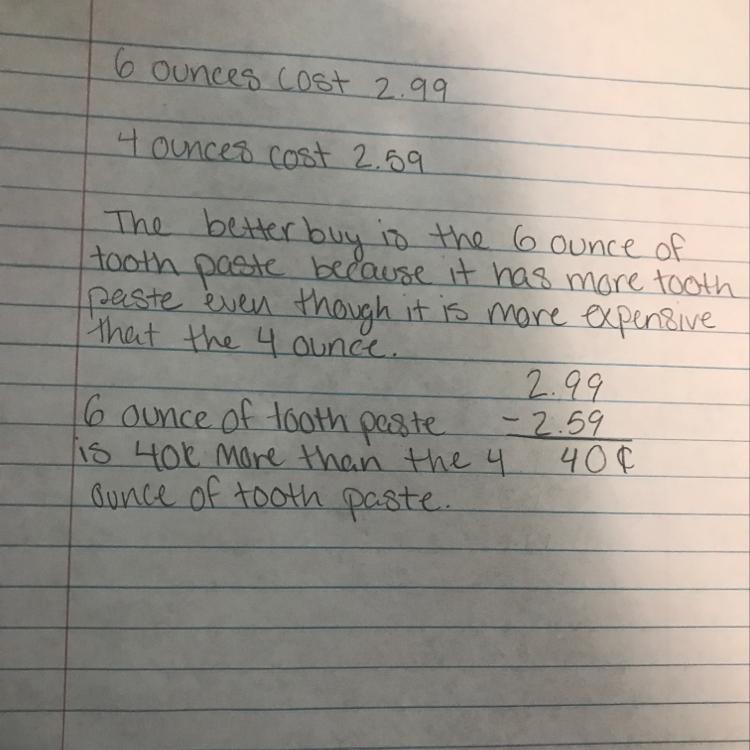 6 ounces cost 2.99
4 ounces cost 2.59
The better buy is the 6 ounce of
tooth paste because it has more tooth
paste even though it is more expensive
that the 4 ounce.
2.99
6 ounce of tooth paste - 2.59
is 40¢ more than the 4 40¢
ounce of tooth paste.